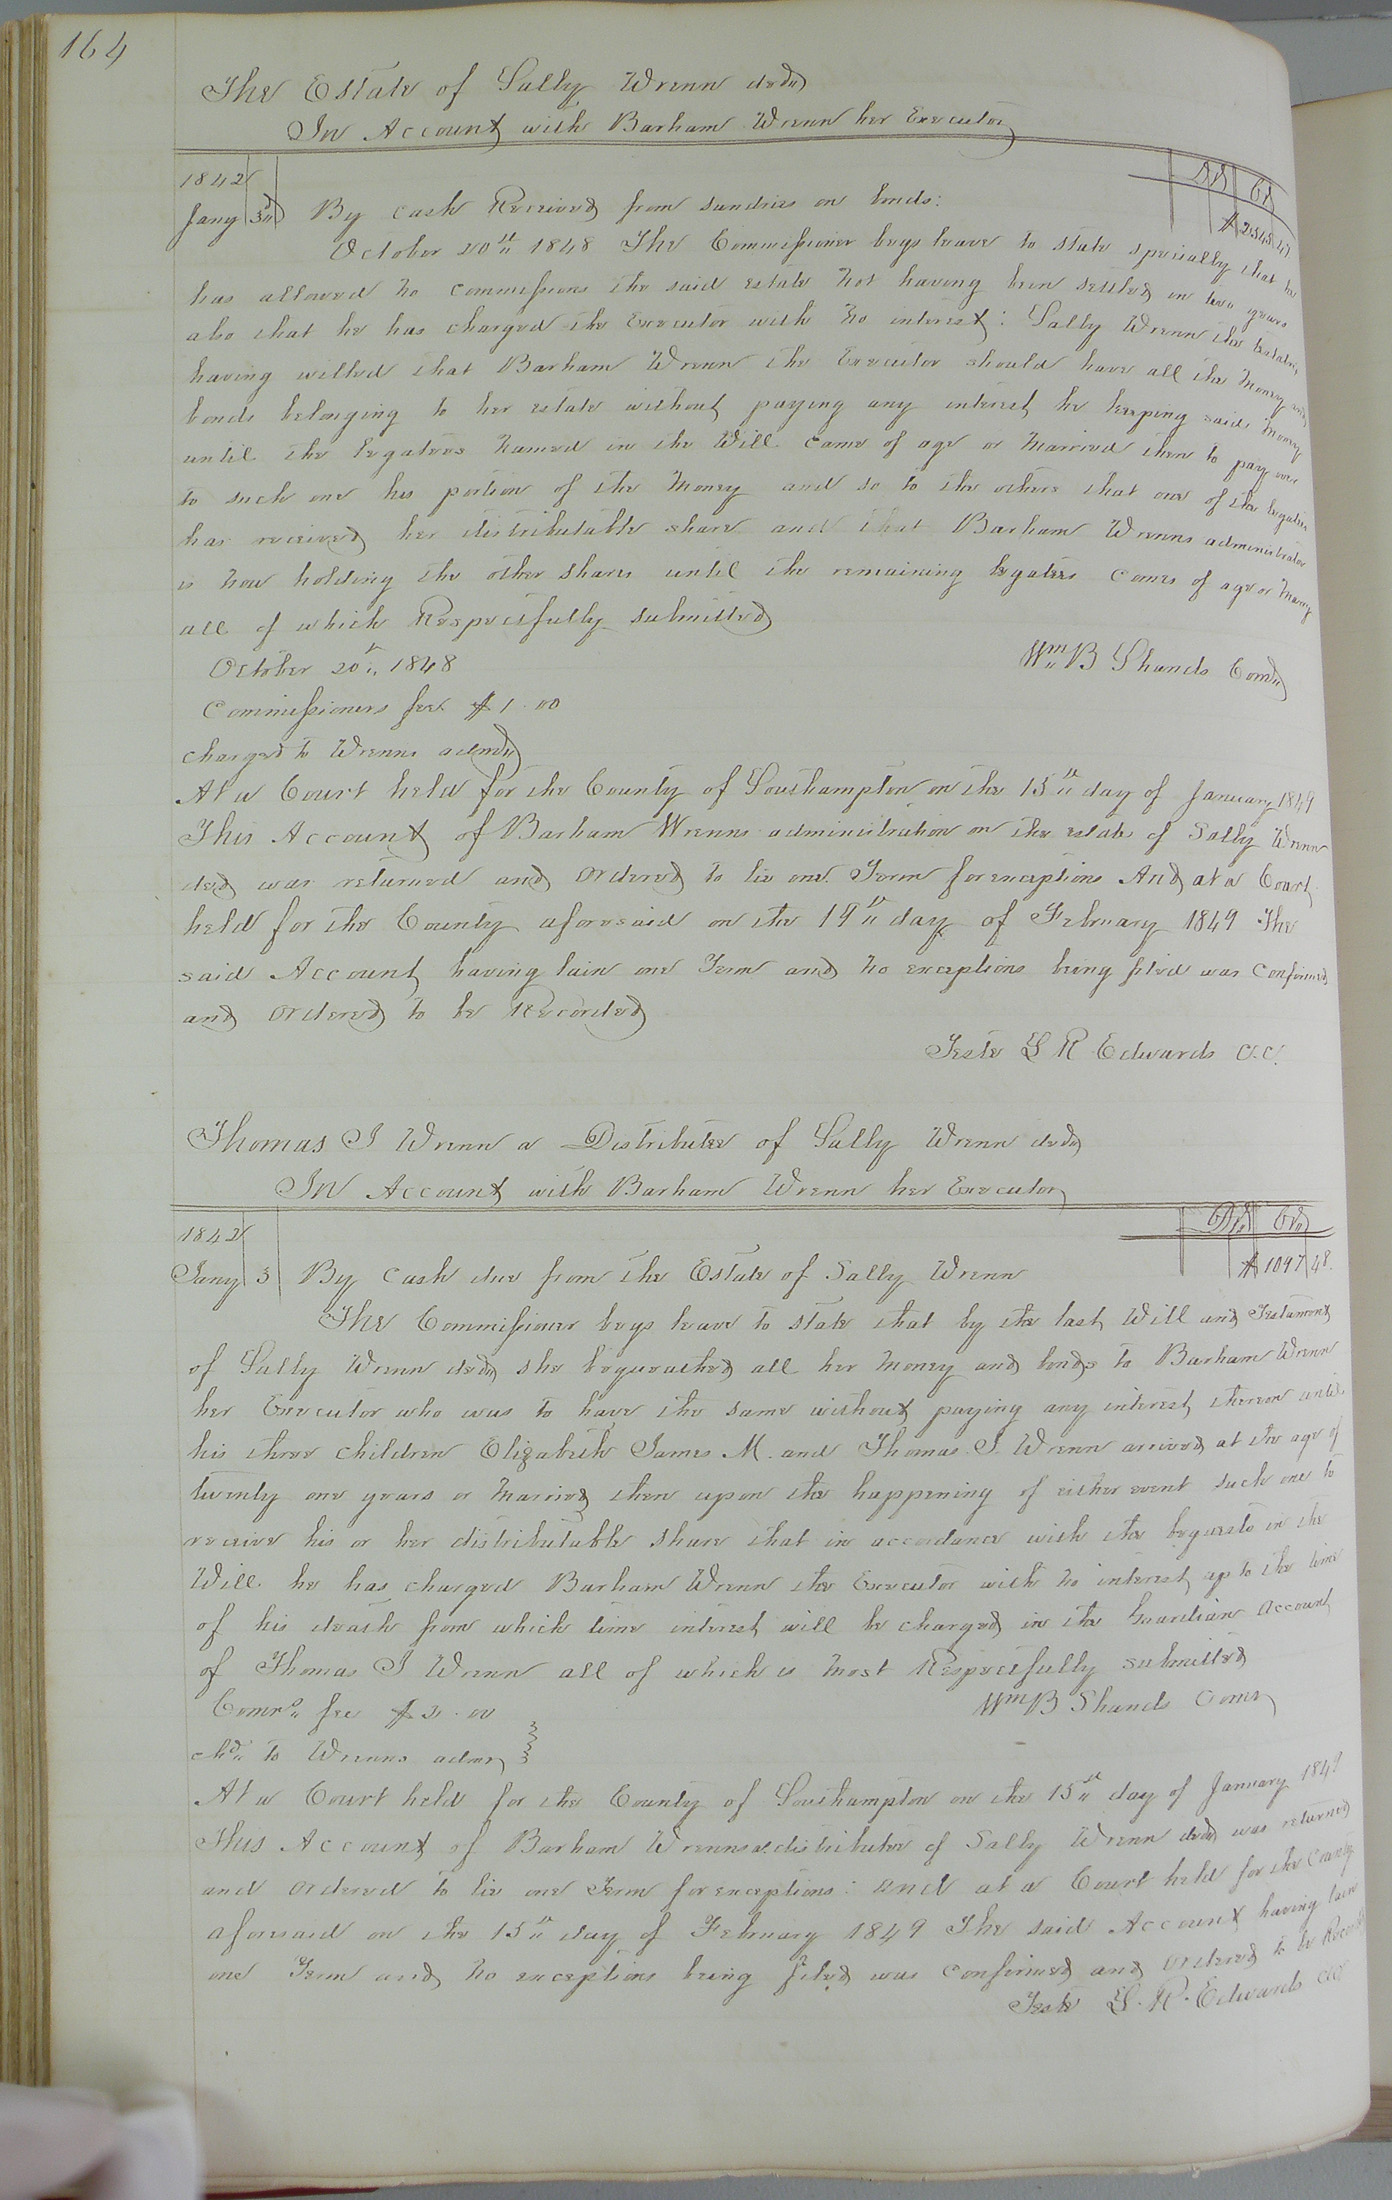 164
The Estate of Sally Wrenn decd
In Account with Barham Wrenn her Executor
1842 Dr Cr
Jany 3d By Cash Received from sundries on bonds:
October 20th 1848 The Commissioner begs leave to state specially that he
has allowed no commissions the said estate not having been settled in two years
also that he has charged the Executor with no interest: Sally Wrenn the testator
having willed that Barham Wrenn the Executor should have all the money and
bonds belonging to her estate without paying any interest he keeping said money
until the legatees named in the Will came of age or married then to pay over
to such one his portion of the money and so to the others that one of the legatees
has received her distributable share and that Barham Wrenns administrator
is now holding the other shares until the remaining legatees comes of age or marry
all of which Respectfully submitted
October 20th 1848 Wm B Shands Comr
Commissioners fee $1.00
charged to Wrenns admr
At a Court held for the County of Southampton on the 15th day of January 1849
This Account of Barham Wrenns administration on the estate of Sally Wrenn
decd was returned and Ordered to lie one Term for exceptions And at a Court
held for the County aforesaid on the 19th day of February 1849 The
said Account having lain one Term and no exceptions being filed was Confirmed
and Ordered to be Recorded
Teste L R Edwards C.C.
Thomas J Wrenn a Distributee of Sally Wrenn decd
In Account with Barham Wrenn her Executor
1842 Dr Cr
Jany 3 By Cash due from the Estate of Sally Wrenn $1097 48
The Commissioner begs leave to state that by the last Will and Testament
of Sally Wrenn decd she bequeathed all her money and bonds to Barham Wrenn
her Executor who was to have the same without paying any interest thereon until
his three children Elizabeth James M. and Thomas J. Wrenn arrived at the age of
twenty one years or married then upon the happening of either event such one to
receive his or her distributable share that in accordance with the bequests in the
Will he has charged Barham Wrenn the Executor with no interest up to the time
of his death from which time interest will be charged in the Guardian Account
of Thomas J Wrenn all of which is most Respectfully submitted
Comrs fee $ .00 Wm B Shands Comr
chd to Wrenns admr
At a Court held for the County of Southampton on the 15th day of January 1849
This Account of Barham Wrenns a distributee of Sally Wrenn decd was returned
and ordered to lie one Term for exceptions: and at a Court held for the County
aforesaid on the 15th day of February 1849 The said Account having lain
one Term and no exceptions being filed was Confirmed and Ordered to be Recorded
Teste L. R. Edwards CC